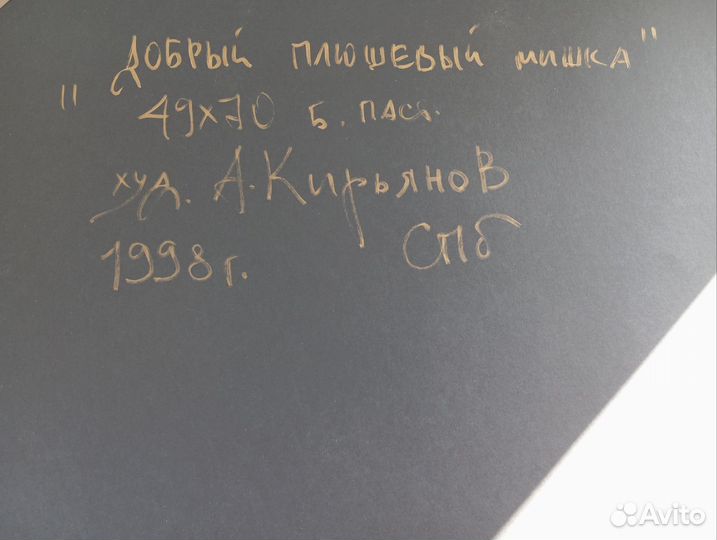 "Добрый плюшевый мишка"
49х70 б. паст.
худ. А. Кирьянов
1998 г. СПб
Avito